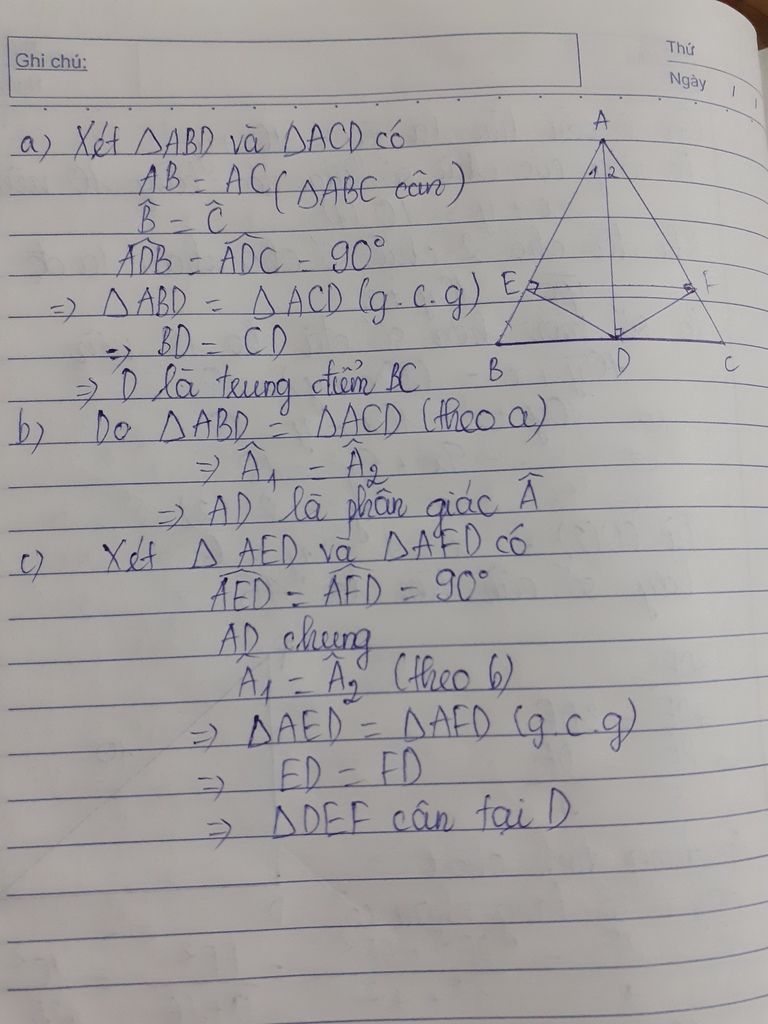 Ghi chú:
Thứ
Ngày / /
a) Xét ΔABD và ΔACD có
AB = AC (ΔABC cân)
B̂ = Ĉ
ADB̂ = ADĈ = 90°
=> ΔABD = ΔACD (g.c.g)
=> BD = CD
=> D là trung điểm BC
A
1 2
E F
B D C
b) Do ΔABD = ΔACD (theo a)
=> Â1 = Â2
=> AD là phân giác Â
c) Xét ΔAED và ΔAFD có
AED̂ = AFD̂ = 90°
AD chung
Â1 = Â2 (theo b)
=> ΔAED = ΔAFD (g.c.g)
=> ED = FD
=> ΔDEF cân tại D